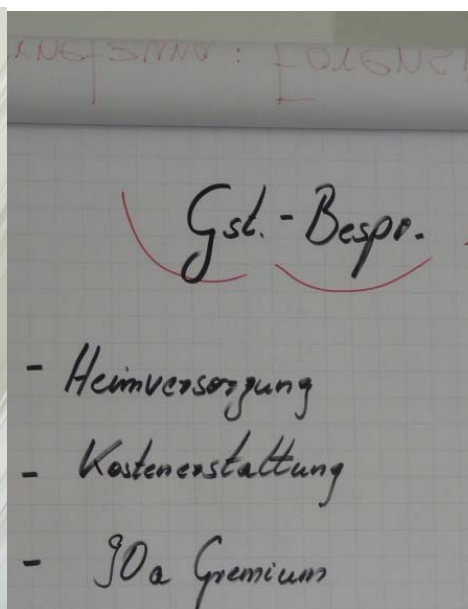 Gst.-Bespr.
- Heimversorgung
- Kostenerstattung
- 90a Gremium